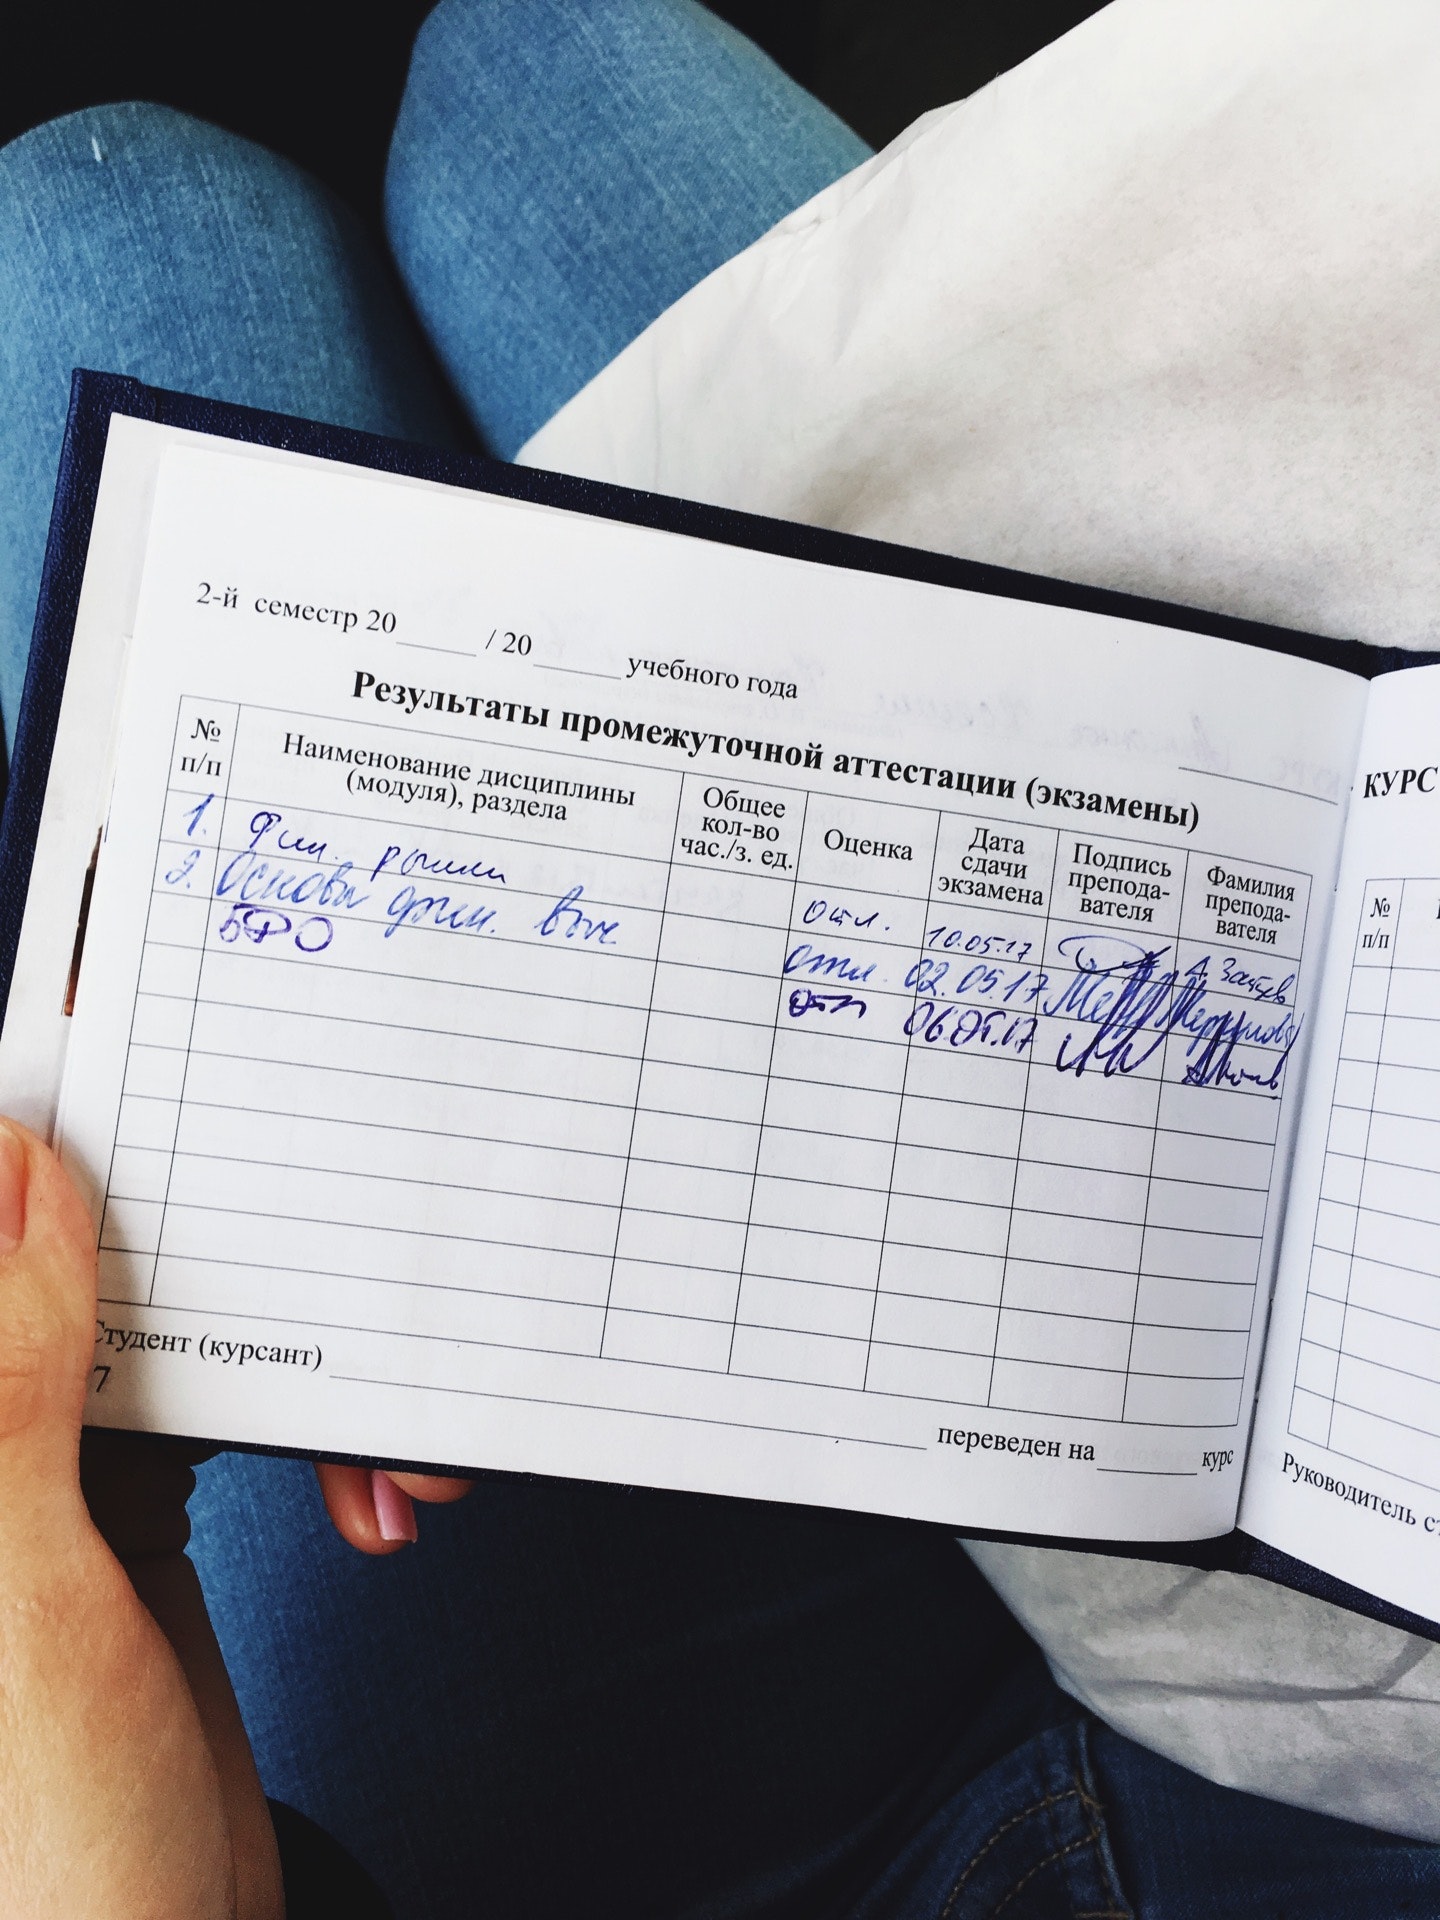 2-й семестр 20 / 20 учебного года
Результаты промежуточной аттестации (экзамены)
№ п/п
Наименование дисциплины
(модуля), раздела
Общее
кол-во
час./з. ед.
Оценка
Дата
сдачи
экзамена
Подпись
препода-
вателя
Фамилия
препода-
вателя
1. Фин. рынки отл. 10.05.17 А. Зайцев
2. Основы фин. выч. отл. 02.05.17
БФО отл 06.05.17
Студент (курсант) переведен на курс
7
КУРС
№
п/п
Руководитель